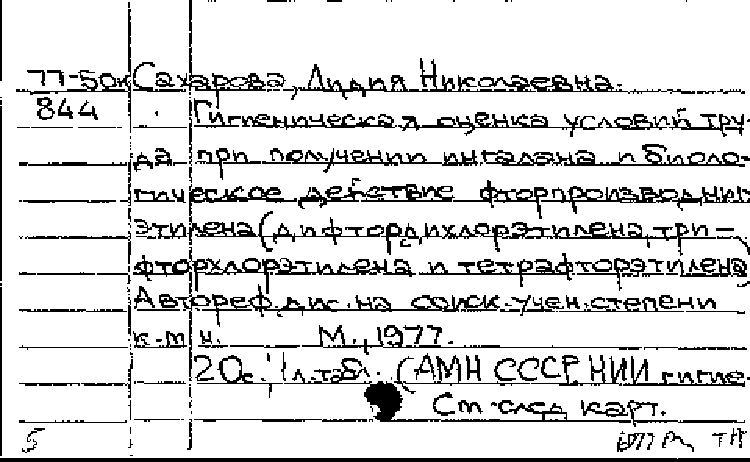 77-50к Сахарова, Лидия Николаевна.
844 Гигиеническая оценка условий тру-
да при получении ингалана и биоло-
гическое действие фторпроизводных
этилена (дифтордихлорэтилена, три-
фторхлорэтилена и тетрафторэтилена)
Автореф. дис. на соиск. учен. степени
к.м.н. М., 1977.
20с., 1л. табл. (АМН СССР, НИИ гигие-
См. след. карт.
5